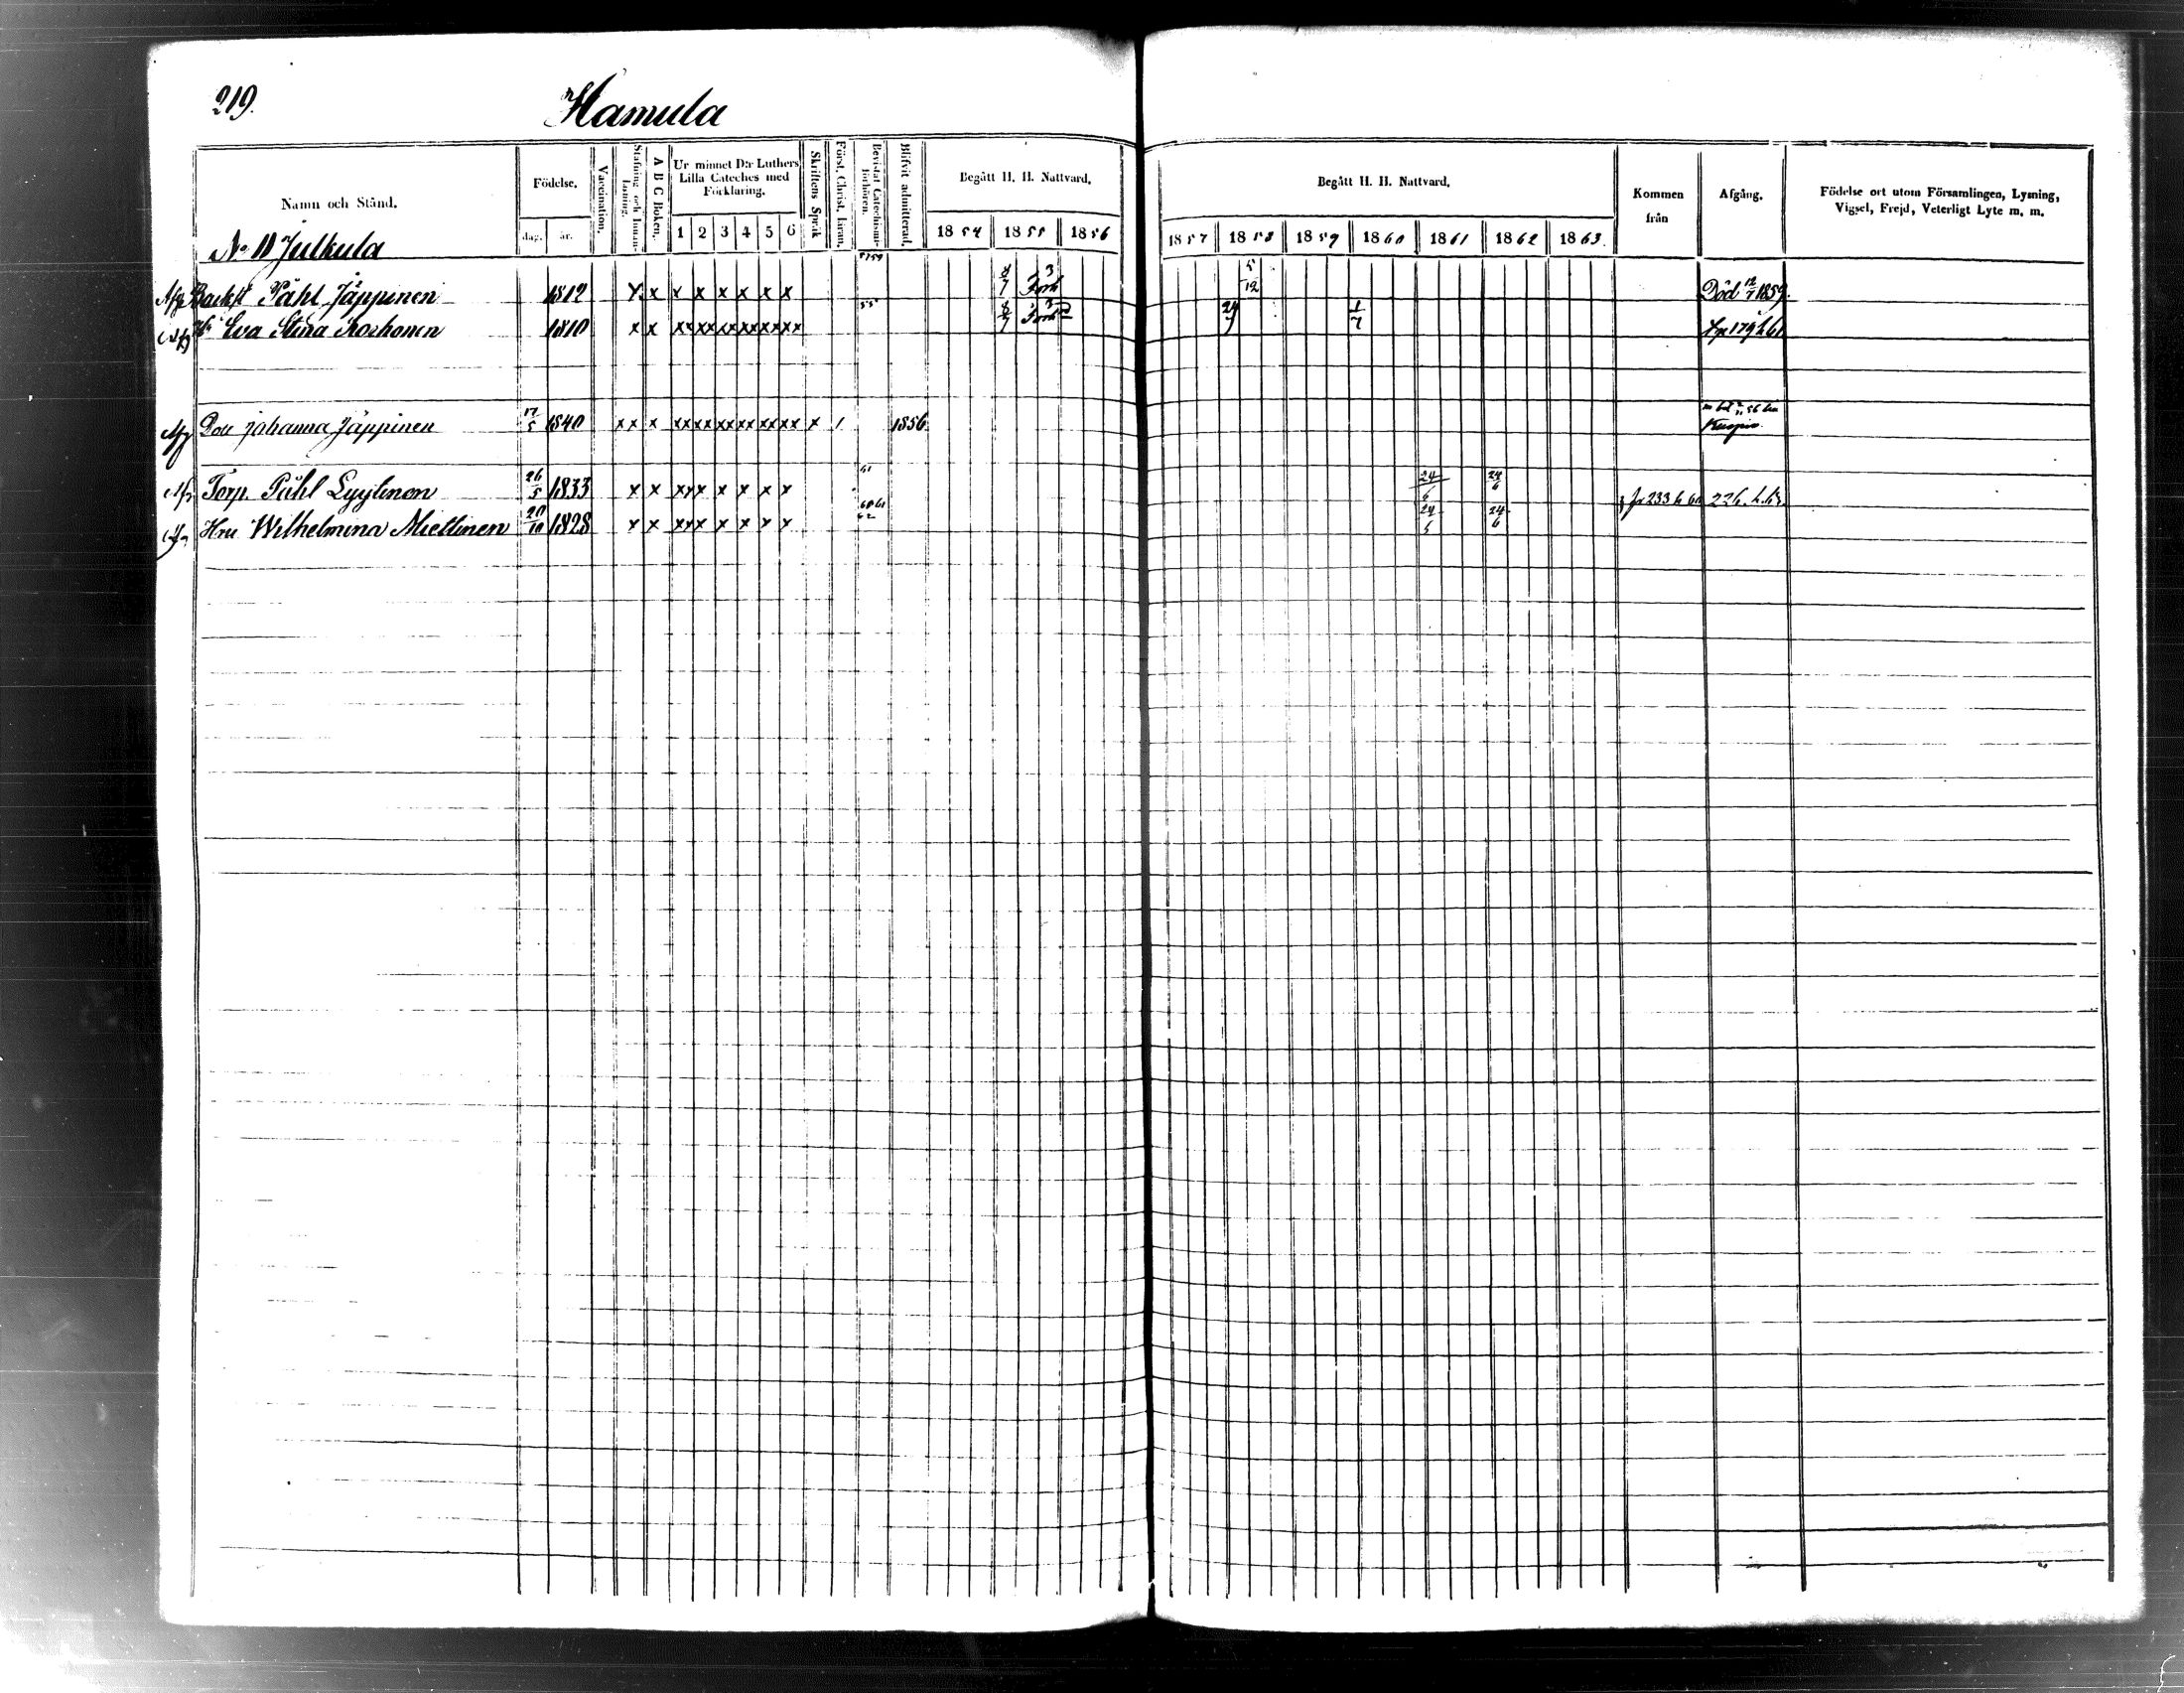 219.
Hamula
Namn och Stånd.
Födelse.
dag.
år.
Vaccination.
Stafning och Innanläsning.
A B C Boken.
Ur minnet D:r Luthers Lilla Cateches med Förklaring.
1 2 3 4 5 6
Skriftens Språk
Först. Christ. läran.
Bevistat Catechismiförhören.
Blifvit admitterad.
Begått H. H. Nattvard.
1854 1855 1856
Begått H. H. Nattvard.
1857 1858 1859 1860 1861 1862 1863.
Kommen från
Afgång.
Födelse ort utom Församlingen, Lysning, Vigsel, Frejd, Veterligt Lyte m. m.
No 11 Julkula
Afg Backst Påhl Jäppinen 1812 x x x x x x x x 8/7 3 5/12 Död 12/7 1859.
Afg Eva Stina Korhonen 1810 x x xx xx xx xx xx xx 55 8/7 3 24/7 1/7 179 h. 61
Afg Dou Johanna Jäppinen 17/5 1840 xx x xx xx xx xx xx xx x 1 1856 Kuopio.
Torp. Påhl Lyytinen 26/5 1833 x x xxx x x x x 61 24/6 24/6 233 h 60 226. h. 63.
Hru Wilhelmina Miettinen 20/10 1828 x x xxx x x x x 60 61 62 24/5 24/6